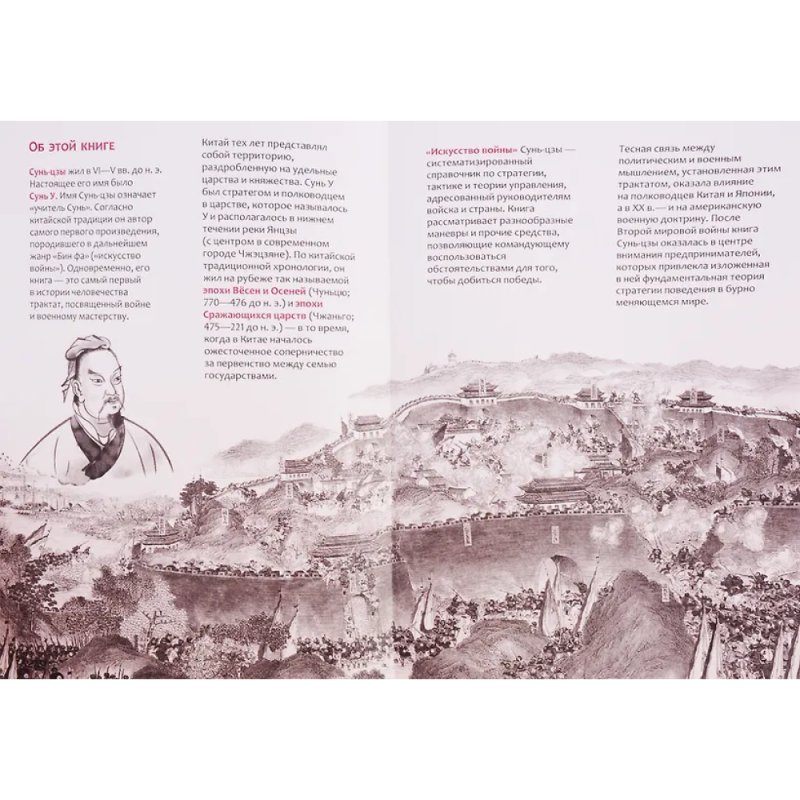 Об этой книге
Сунь-цзы жил в VI—V вв. до н. э.
Настоящее его имя было
Сунь У. Имя Сунь-цзы означает
«учитель Сунь». Согласно
китайской традиции он автор
самого первого произведения,
породившего в дальнейшем
жанр «Бин фа» («искусство
войны»). Одновременно, его
книга — это самый первый
в истории человечества
трактат, посвященный войне
и военному мастерству.
Китай тех лет представлял
собой территорию,
раздробленную на удельные
царства и княжества. Сунь У
был стратегом и полководцем
в царстве, которое называлось
У и располагалось в нижнем
течении реки Янцзы
(с центром в современном
городе Чжэцзяне). По китайской
традиционной хронологии, он
жил на рубеже так называемой
эпохи Вёсен и Осеней (Чуньцю;
770—476 до н. э.) и эпохи
Сражающихся царств (Чжаньго;
475—221 до н. э.) — в то время,
когда в Китае началось
ожесточенное соперничество
за первенство между семью
государствами.
«Искусство войны» Сунь-цзы —
систематизированный
справочник по стратегии,
тактике и теории управления,
адресованный руководителям
войска и страны. Книга
рассматривает разнообразные
маневры и прочие средства,
позволяющие командующему
воспользоваться
обстоятельствами для того,
чтобы добиться победы.
Тесная связь между
политическим и военным
мышлением, установленная этим
трактатом, оказала влияние
на полководцев Китая и Японии,
а в XX в.— и на американскую
военную доктрину. После
Второй мировой войны книга
Сунь-цзы оказалась в центре
внимания предпринимателей,
которых привлекла изложенная
в ней фундаментальная теория
стратегии поведения в бурно
меняющемся мире.